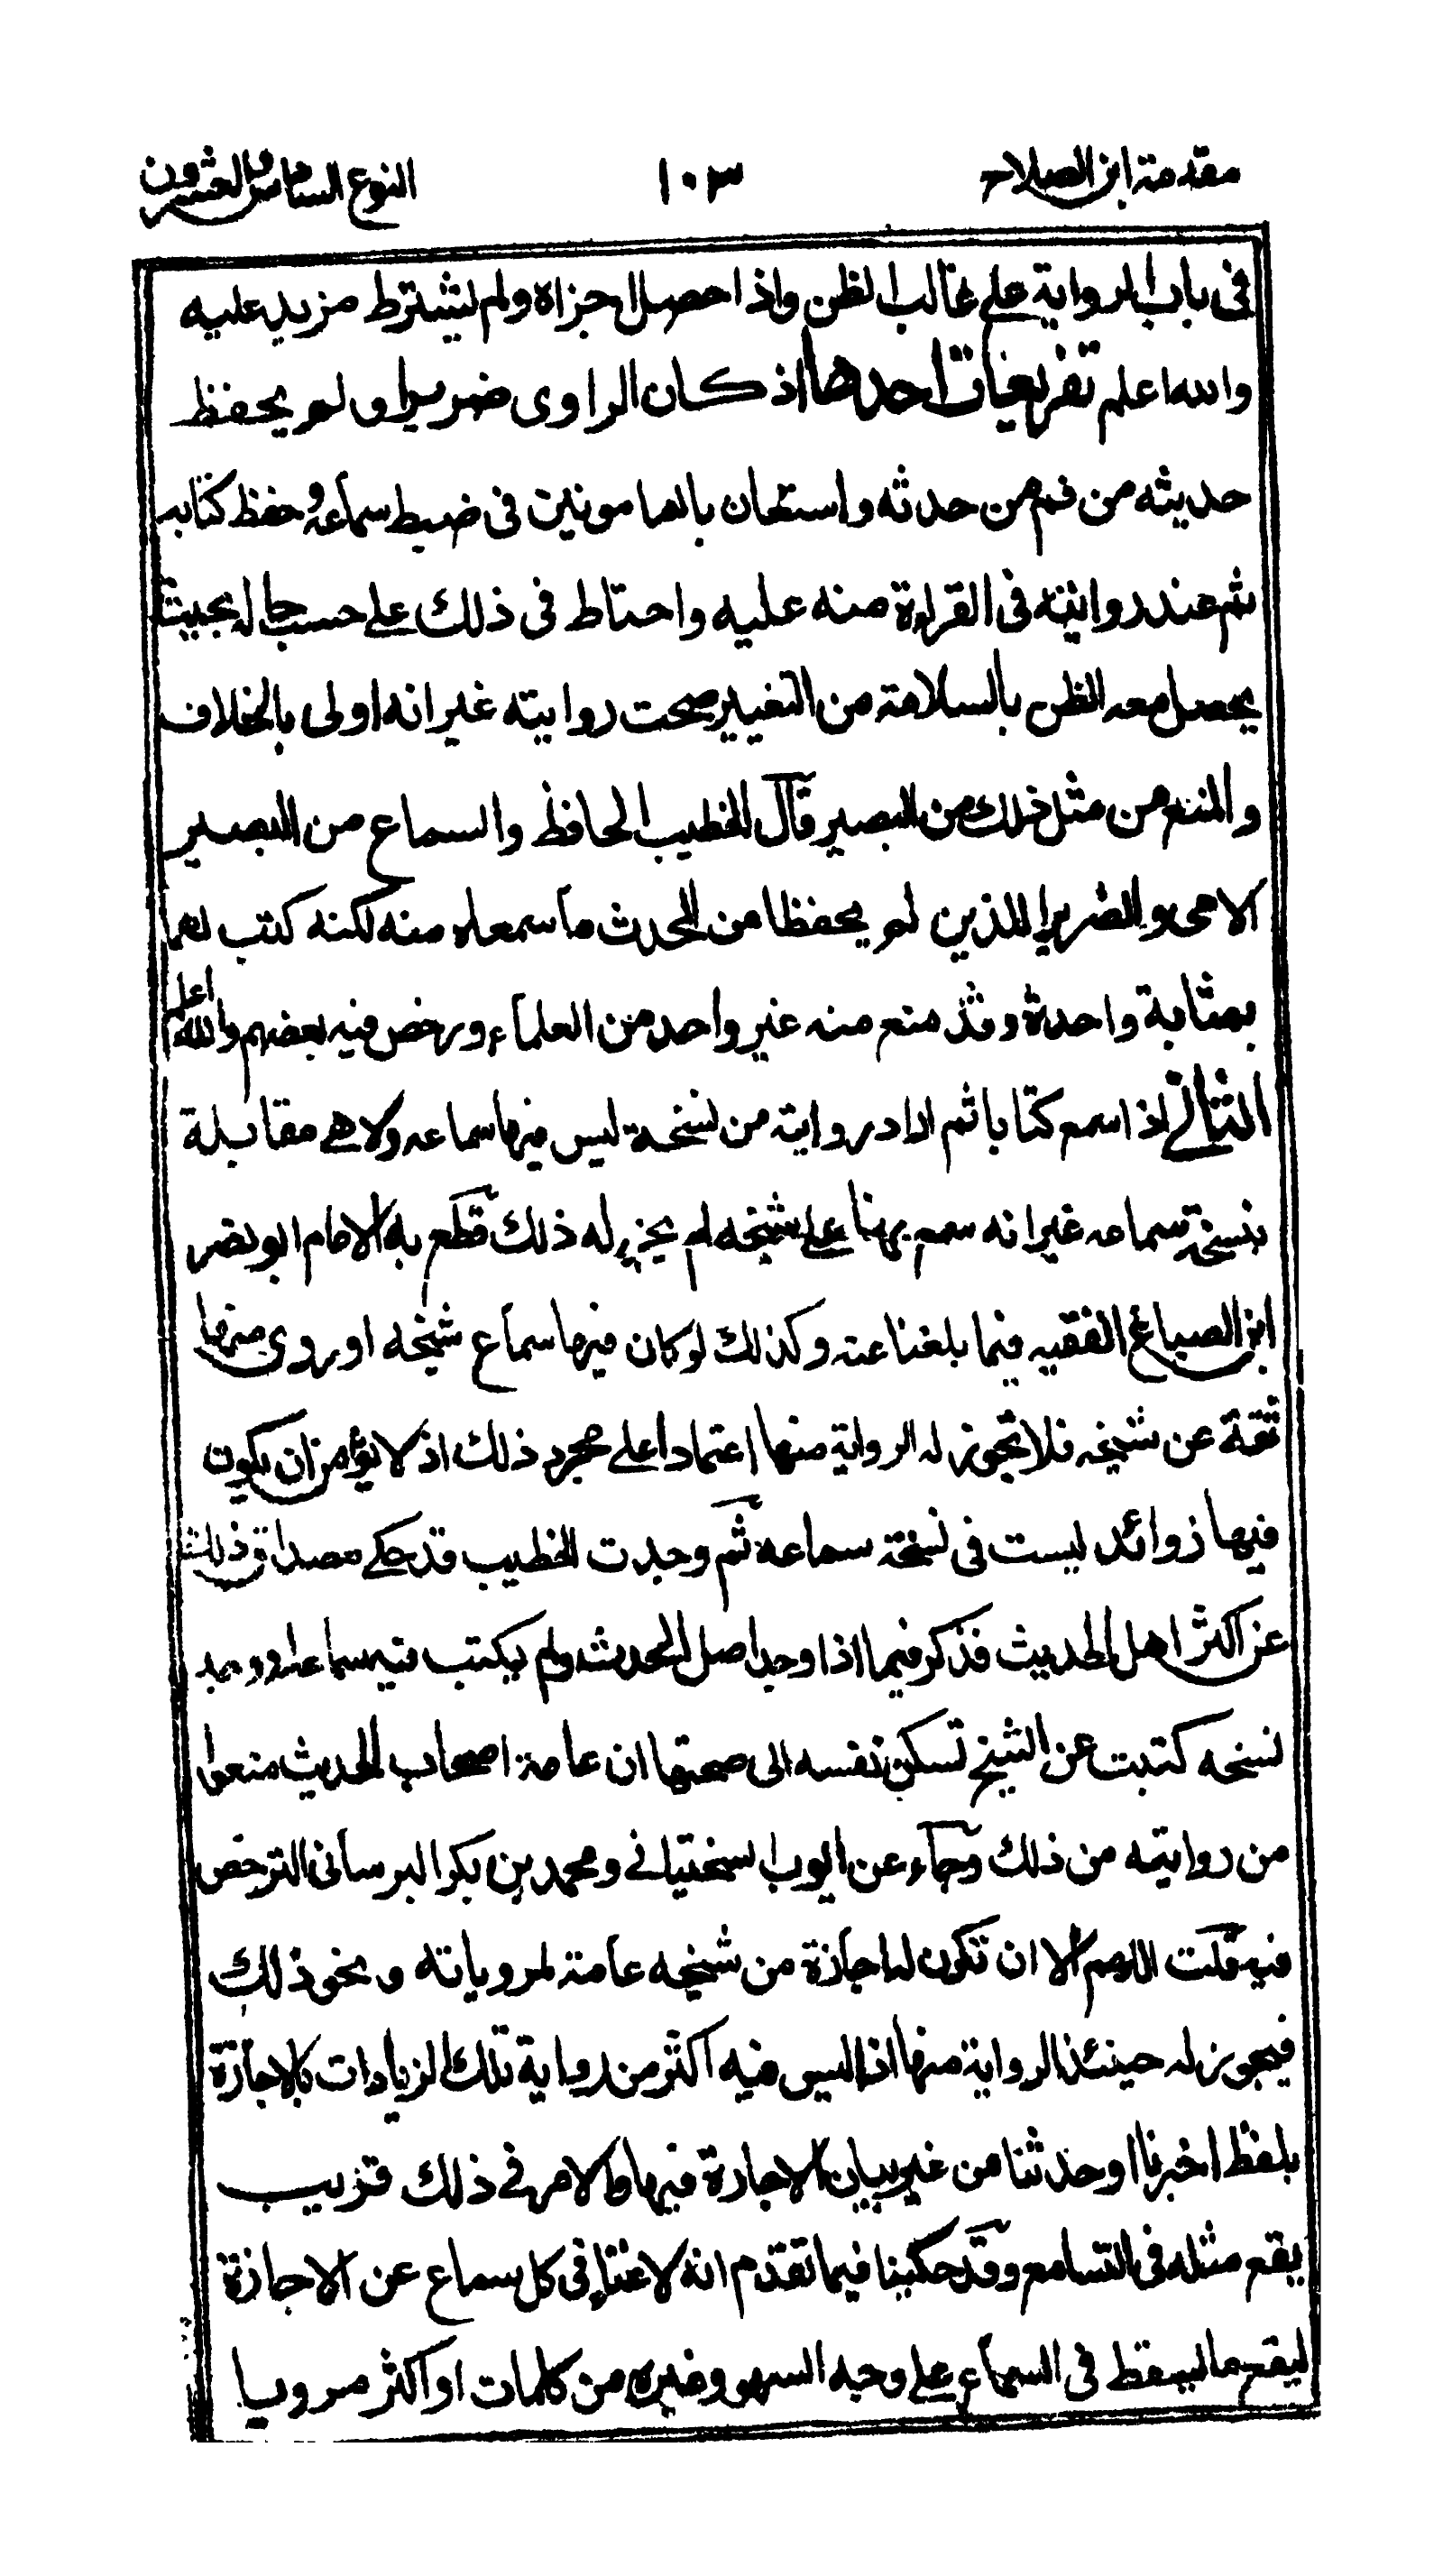 مقدمة ابن الصلاح ١٠٣ النوع السادس والعشرون
فى باب الرواية على غالب الظن واذا حصل اجزاه ولم يشترط مزيد عليه
والله اعلم تفريعات احدها اذ كان الراوى ضريرا ولم يحفظ
حديثه من فم من حدثه واستعان بالمامونين فى ضبط سماعه وحفظ كتابه
ثم عند روايته فى القراءة منه عليه واحتاط فى ذلك على حسب حاله بحيث
يحصل معه الظن بالسلامة من التغيير صحت روايته غير انه اولى بالخلاف
والمنع من مثل ذلك من البصير قال الخطيب الحافظ والسماع من البصير
الامى والضرير الذين لم يحفظا من المحدث ما سمعاه منه لكنه كتب لهما
بمثابة واحدة وقد منع منه غير واحد من العلماء ورخص فيه بعضهم والله اعلم
الثانى اذ اسمع كتابا ثم اراد روايته من نسخة ليس فيها سماعه ولا هى مقابلة
بنسخة سماعه غير انه سمع بها على شيخه لم يجز له ذلك قطع به الامام ابو نصر
ابن الصباغ الفقيه فيما بلغنا عنه وكذلك لو كان فيها سماع شيخه او روى منها
ثقة عن شيخه فلا تجوز له الرواية منها اعتمادا على مجرد ذلك اذ لا يؤمن ان يكون
فيها زوائد ليست فى نسخة سماعه ثم وجدت الخطيب قد حكى مصداق ذلك
عن اكثر اهل الحديث فذكر فيما اذا وجد اصل المحدث ولم يكتب فيه سماعه او وجد
نسخه كتبت عن الشيخ تسكن نفسه الى صحتها ان عامة اصحاب الحديث منعوا
من روايته من ذلك وجاء عن ايوب السختيانى ومحمد بن بكر البرسانى الترخص
فيه قلت اللهم الا ان تكون له اجازة من شيخه عامة لمروياته ونحو ذلك
فيجوز له حينئذ الرواية منها اذ ليس فيه اكثر من رواية تلك الزيادات بالاجازة
بلفظ اخبرنا او حدثنا من غير بيان الاجازة فيها والامر فى ذلك قريب
يقع مثله فى التسامع وقد حكينا فيما تقدم انه لا غناء فى كل سماع عن الاجازة
ليقع ما يسقط فى السماع على وجه السهو وغيره من كلمات او اكثر مرويا